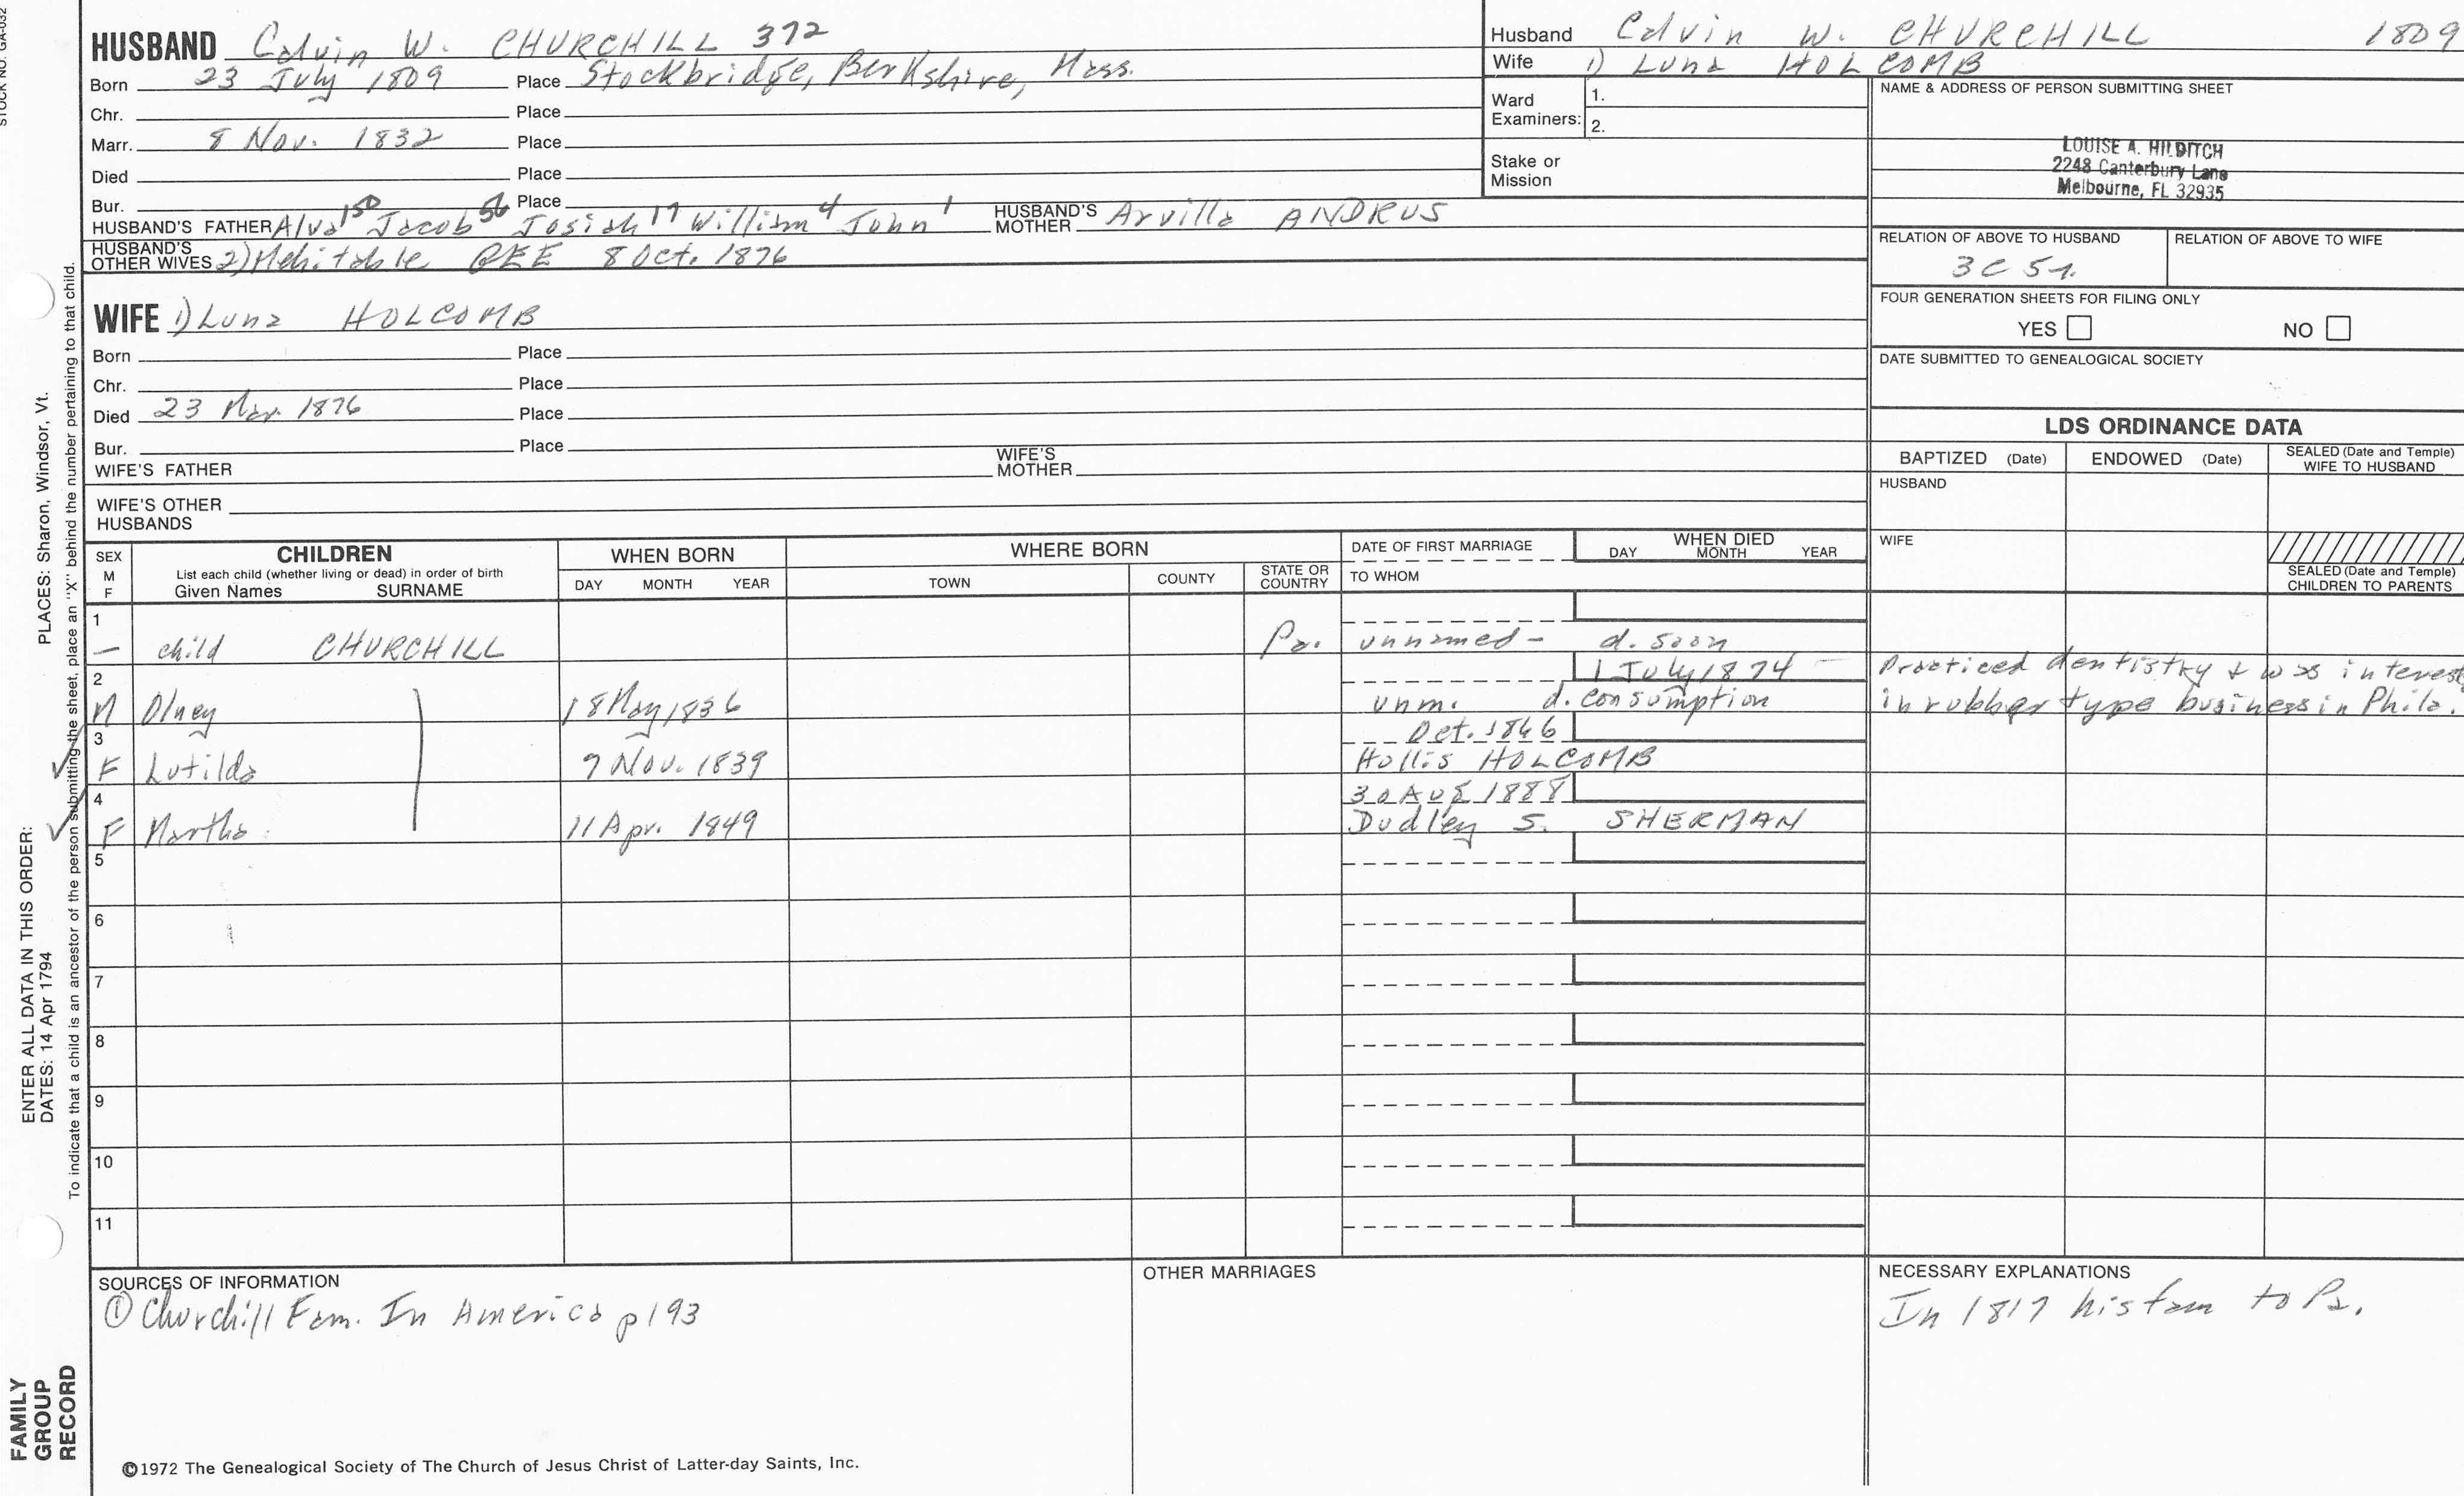 STOCK NO. GA-032
HUSBAND Calvin W. CHURCHILL 372
Born 23 July 1809 Place Stockbridge, Berkshire, Mass.
Chr. Place
Marr. 8 Nov. 1832 Place
Died Place
Bur. Place
HUSBAND'S FATHER Alva 150 Jacob 56 Josiah 17 William 4 John 1 HUSBAND'S MOTHER Arvilla ANDRUS
HUSBAND'S OTHER WIVES 2) Mehitable 8 Oct. 1876
WIFE 1) Luna HOLCOMB
Born Place
Chr. Place
Died 23 Mar. 1876 Place
Bur. Place
WIFE'S FATHER WIFE'S MOTHER
WIFE'S OTHER HUSBANDS
Husband Calvin W. CHURCHILL 1809
Wife 1) Luna HOLCOMB
Ward Examiners: 1.
2.
Stake or Mission
NAME & ADDRESS OF PERSON SUBMITTING SHEET
LOUISE A. HILDITCH
2248 Canterbury Lane
Melbourne, FL 32935
RELATION OF ABOVE TO HUSBAND RELATION OF ABOVE TO WIFE
3C 5r.
FOUR GENERATION SHEETS FOR FILING ONLY
YES NO
DATE SUBMITTED TO GENEALOGICAL SOCIETY
LDS ORDINANCE DATA
BAPTIZED (Date) ENDOWED (Date) SEALED (Date and Temple) WIFE TO HUSBAND
HUSBAND
WIFE
SEALED (Date and Temple) CHILDREN TO PARENTS
SEX M F
CHILDREN
List each child (whether living or dead) in order of birth
Given Names SURNAME
WHEN BORN
DAY MONTH YEAR
WHERE BORN
TOWN COUNTY STATE OR COUNTRY
DATE OF FIRST MARRIAGE
TO WHOM
WHEN DIED
DAY MONTH YEAR
1
— child CHURCHILL Pa. unnamed - d. soon
2 1 July 1874
M Olney 18 May 1836 unm. d. consumption
Practiced dentistry & was interest
in rubber type business in Phila.
3 Oct. 1866
F Lutilda 9 Nov. 1839 Hollis HOLCOMB
4 30 Aug 1888
F Martha 11 Apr. 1849 Dudley S. SHERMAN
5
6
7
8
9
10
11
SOURCES OF INFORMATION
① Churchill Fam. In America p193
OTHER MARRIAGES
NECESSARY EXPLANATIONS
In 1817 his fam to Pa.
©1972 The Genealogical Society of The Church of Jesus Christ of Latter-day Saints, Inc.
ENTER ALL DATA IN THIS ORDER:
DATES: 14 Apr 1794 PLACES: Sharon, Windsor, Vt.
To indicate that a child is an ancestor of the person submitting the sheet, place an "X" behind the number pertaining to that child.
FAMILY
GROUP
RECORD